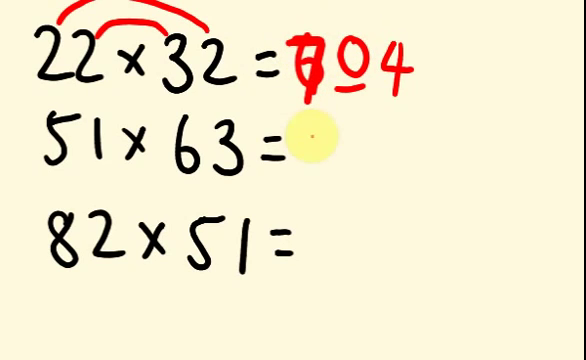 22 × 32 = 704
51 × 63 =
82 × 51 =